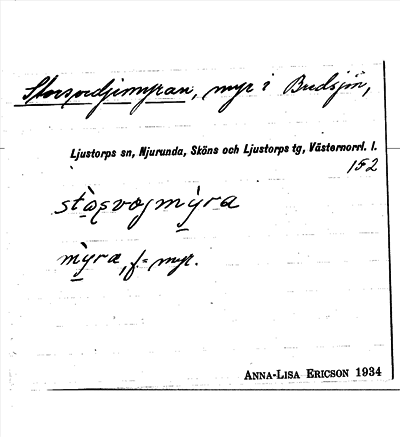 Storsvedjemyran, myr i Bredsjön,
Ljustorps sn, Njurunda, Sköns och Ljustorps tg, Västernorrl. l.
152
mỳra, f = myr.
ANNA-LISA ERICSON 1934